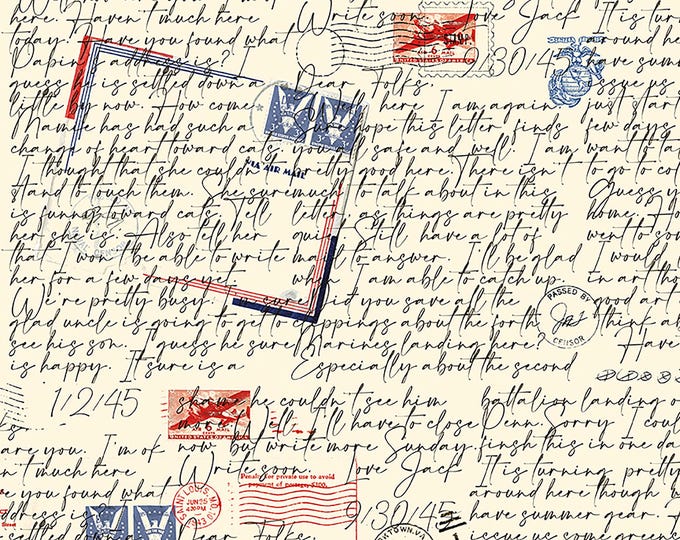 here. Haven't much here Write soon. Love Jack It is turn
today. Have you found what 9/30/45 around
Papin's address is? Dear Folks. have sum
guess he is settled down a issue us
little by now. How come Well here I am again just start
Mamie has had such a Sure hope this letter finds few days
change of heart toward cats. you all safe and well. I am want to ta
I though that she couldn't pretty good here. There isn't to go to co
stand to touch them. She sure much to talk about in this Guess y
is funny toward cats. Tell letter as things are pretty home. Ho
her she is. Also tell her quiet. Still have a lot of went to sou
that I won't be able to write mail to answer. I'll be glad I would
her for a few days yet. when I am able to catch up. in a
We're pretty busy. I'm sure Did you save all the good art
glad uncle is going to get to clippings about the forth think ab
see his son. I guess he sure Marines landing here? Have
is happy. It sure is a Especially about the second
VIA AIR MAIL
PASSED BY
CENSOR
1/2/45 shame he couldn't see him battalion landing o
more. Well I'll have to close Penn. Sorry I coul
are you. I'm of now but write more Sunday finsh this in one da
n't much here Write soon. Love Jack It is turning pretty
e you found what 9/30/45 around here though w
address is? have summer gear.
is settled down a Dear Folks. issue us some greens
UNITED STATES OF AMERICA
Penalty for private use to avoid
payment of postage, $300.
SAINT LOUIS, MO.
JUN 25
4 30 PM
1943